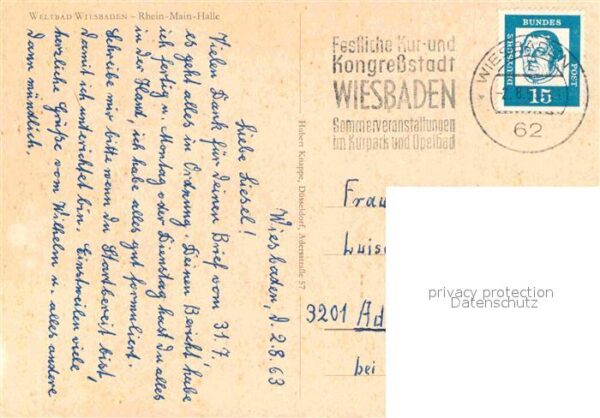 WELTBAD WIESBADEN – Rhein-Main-Halle
Wiesbaden, d. 2.8.63
Liebe Liesel!
Vielen Dank für Deinen Brief vom 31.7.
es geht alles in Ordnung. Deinen Bericht habe
ich fertig u. Montag oder Dienstag hast Du alles
in der Hand, ich habe alles gut formuliert.
Schreibe mir bitte wenn du Startbereit bist,
damit ich unterrichtet bin. Einstweilen viele
herzliche Grüße vom Wilhelm u. alles andere
dann mündlich
Hubert Knappe, Düsseldorf, Adersstraße 57
Festliche Kur-und
Kongreßstadt
WIESBADEN
Sommerveranstaltungen
im Kurpark und Opelbad
WIESBADEN
62
DEUTSCHE
BUNDES
POST
15
Frau
Luise
3201 Ad
bei
privacy protection
Datenschutz